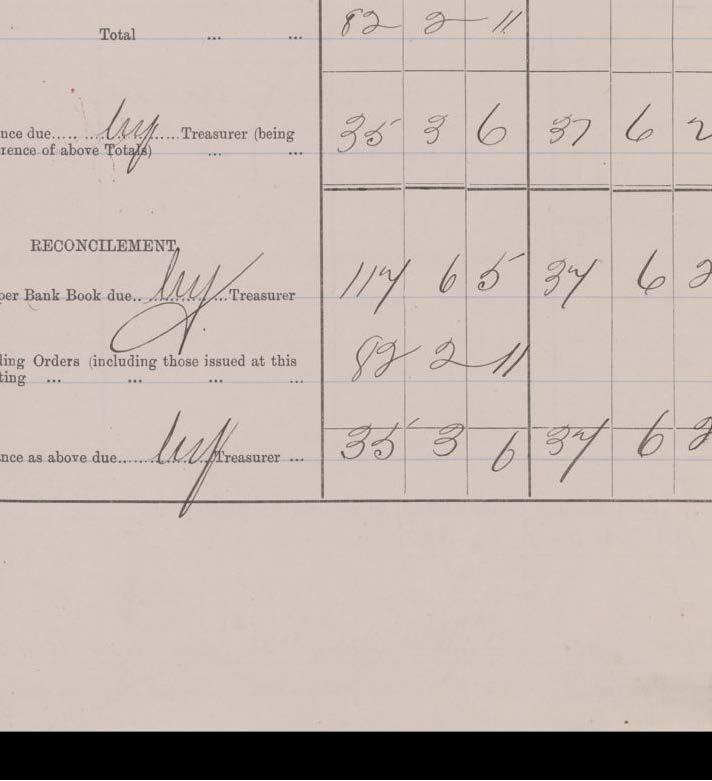 Total ... ... 82 2 11
nce due..... by ..... Treasurer (being 35 3 6 37 6 2
rence of above Totals) ... ...
RECONCILEMENT,
per Bank Book due.. by ... Treasurer 117 6 5 37 6 2
ling Orders (including those issued at this 82 2 11
ting ... ... ... ...
nce as above due...... by Treasurer ... 35 3 6 37 6 2